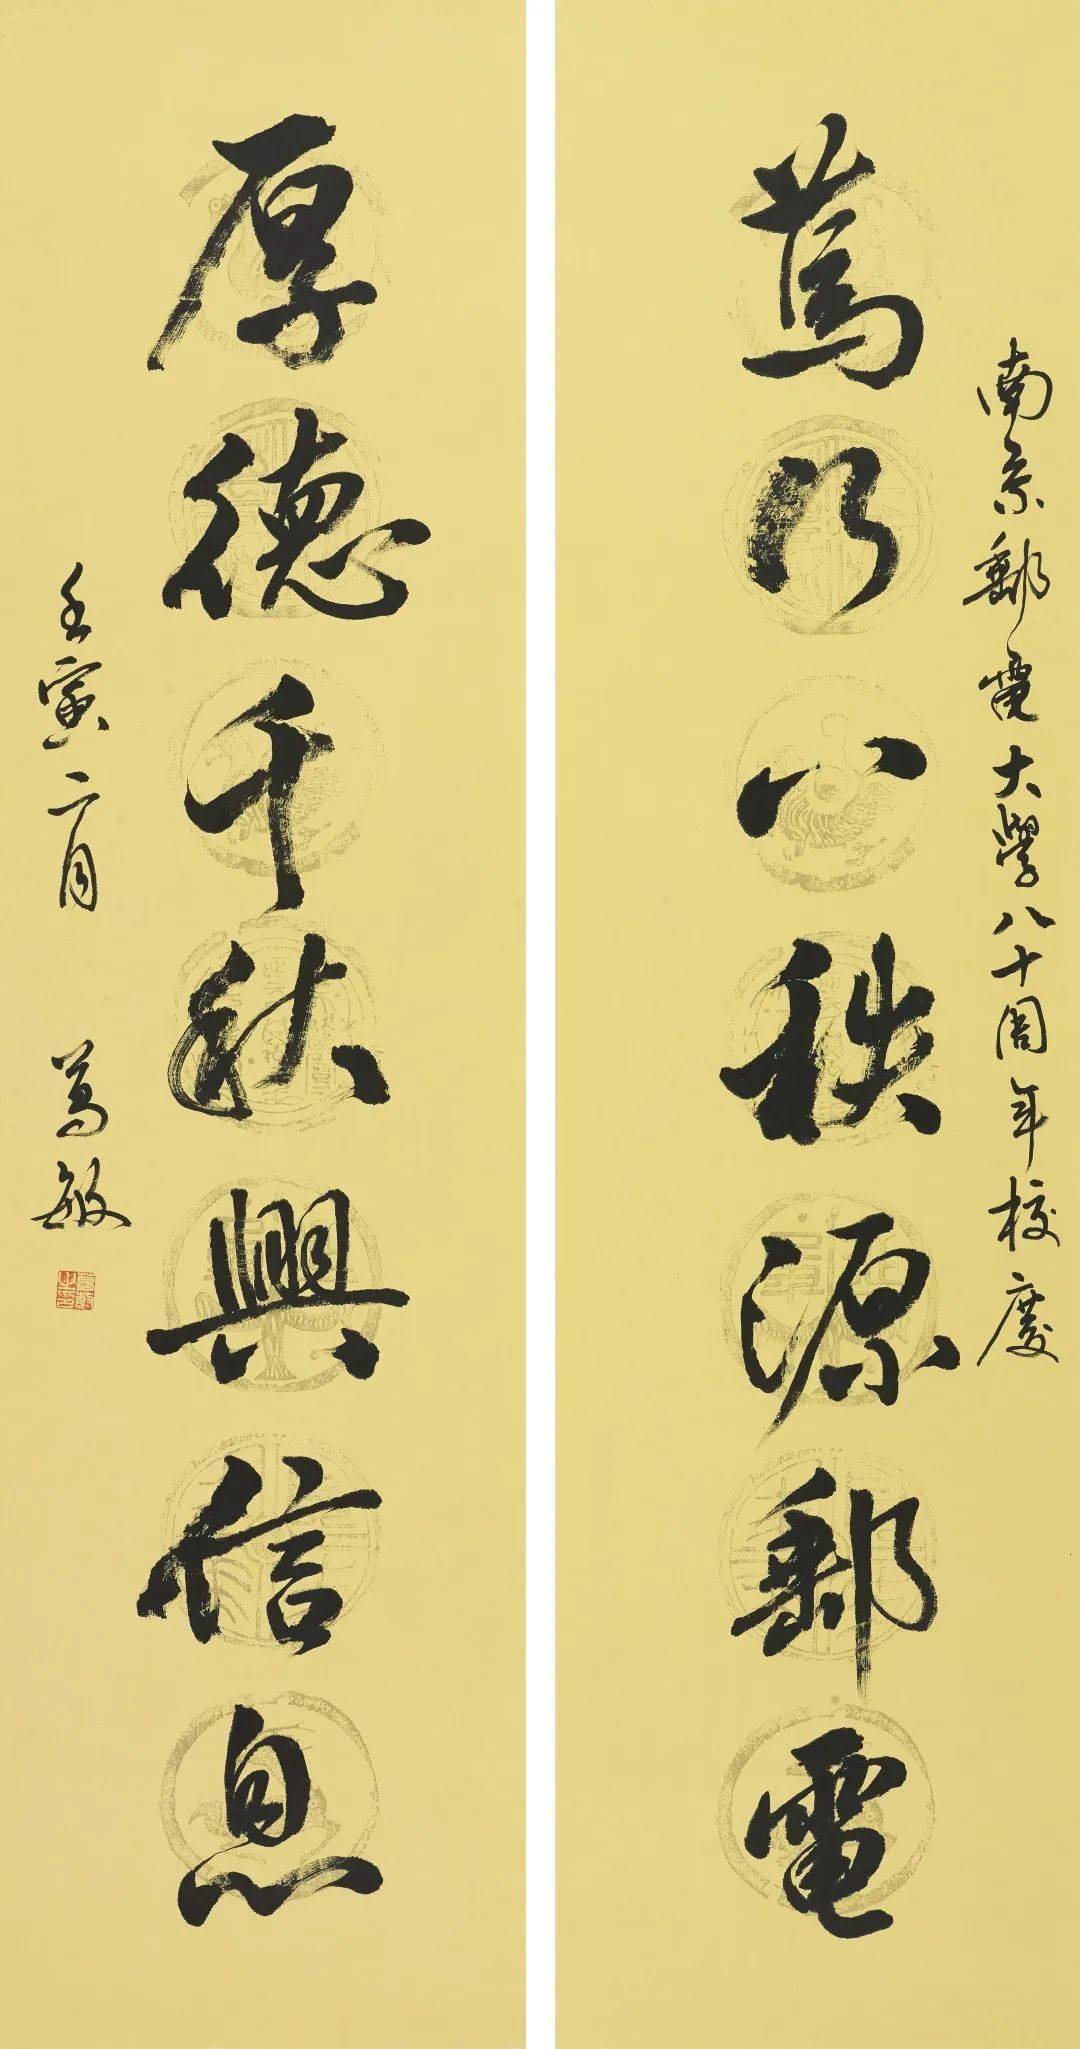 南京郵電大學八十周年校慶
篤行八秩源郵電
厚德千秋興信息
壬寅二月 敏